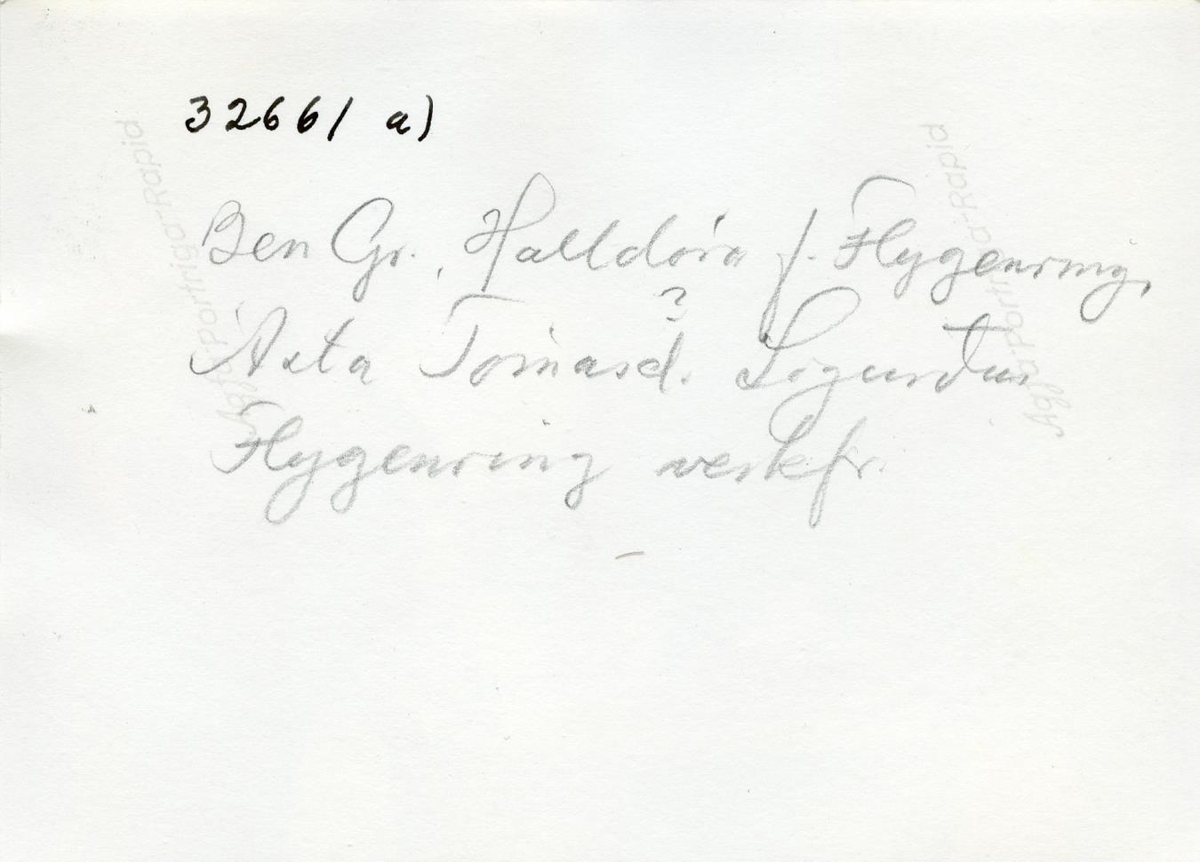 32661 a)
Ben Gr., Halldóra f. Flygenring,
?
Ásta Tómasd. Sigurður
Flygenring verkfr.
Agfa-Portriga-Rapid
Agfa-Portriga-Rapid